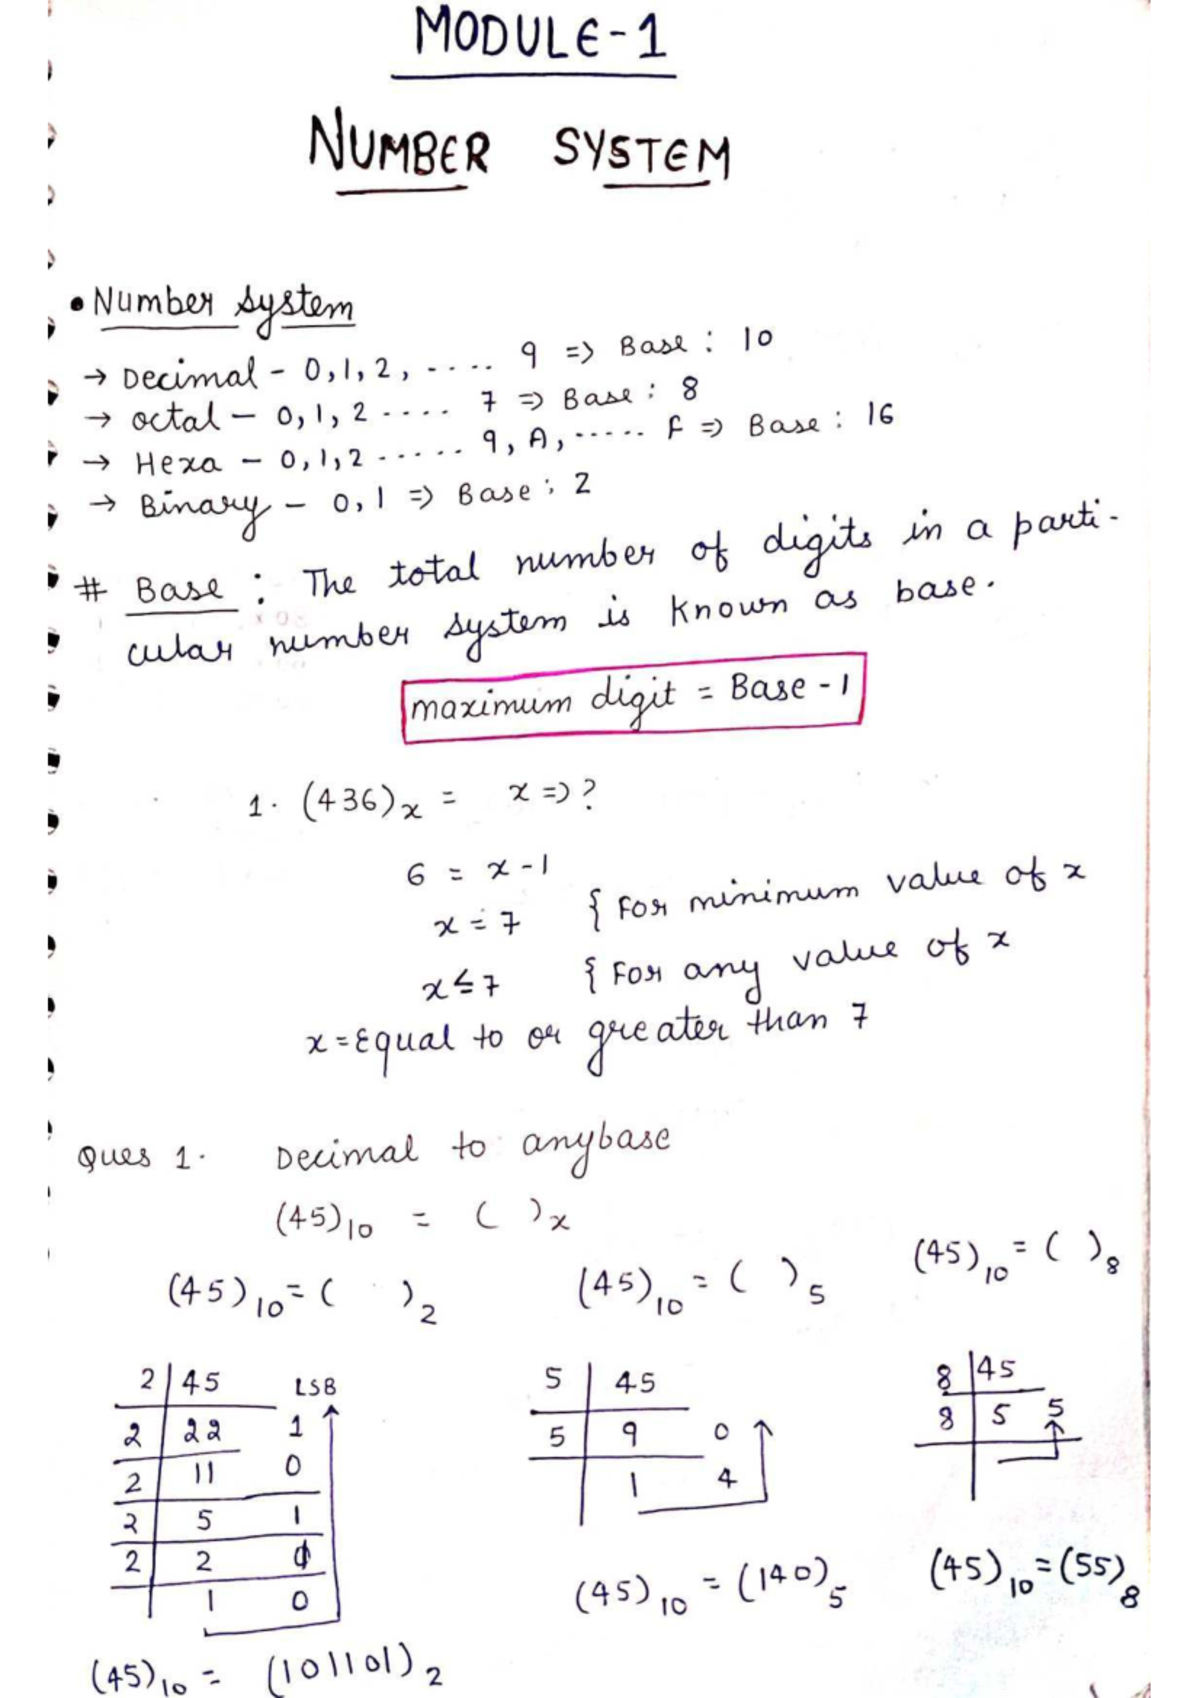 MODULE-1
NUMBER SYSTEM
• Number system
→ Decimal - 0,1,2, .... 9 => Base : 10
→ octal - 0,1,2 .... 7 => Base : 8
→ Hexa - 0,1,2 ..... 9, A, ..... F => Base : 16
→ Binary - 0,1 => Base : 2
# Base : The total number of digits in a parti-
cular number system is known as base.
maximum digit = Base - 1
1. (436)x = x => ?
6 = x - 1
x = 7 { For minimum value of x
x ≤ 7 { For any value of x
x = Equal to or greater than 7
Ques 1. Decimal to anybase
(45)10 = ( )x
(45)10 = ( )2 (45)10 = ( )5 (45)10 = ( )8
2 45 LSB 5 45 8 45
2 22 1 5 9 0 8 5 5
2 11 0 1 4
2 5 1
2 2 1
1 0
(45)10 = (140)5 (45)10 = (55)8
(45)10 = (101101)2